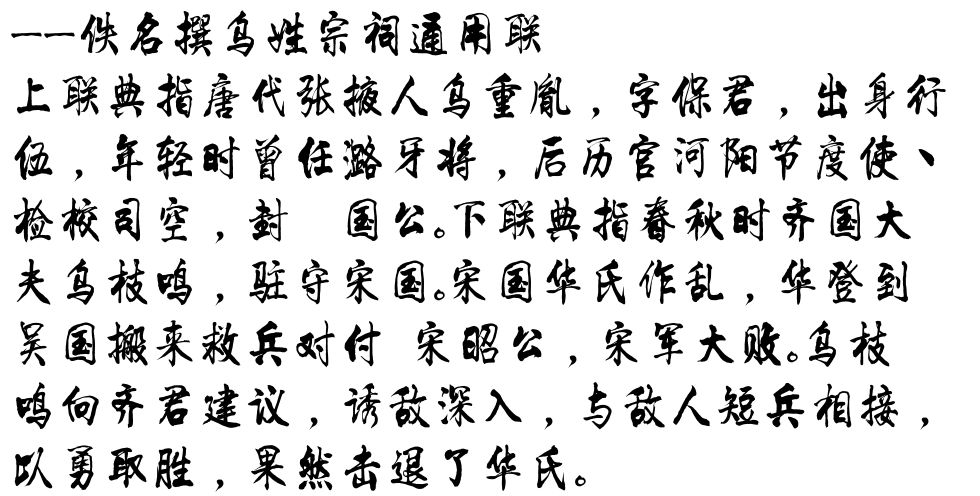 ——佚名撰乌姓宗祠通用联
上联典指唐代张掖人乌重胤，字保君，出身行
伍，年轻时曾任潞牙将，后历官河阳节度使、
检校司空，封 国公。下联典指春秋时齐国大
夫乌枝鸣，驻守宋国。宋国华氏作乱，华登到
吴国搬来救兵对付 宋昭公，宋军大败。乌枝
鸣向齐君建议，诱敌深入，与敌人短兵相接，
以勇取胜，果然击退了华氏。